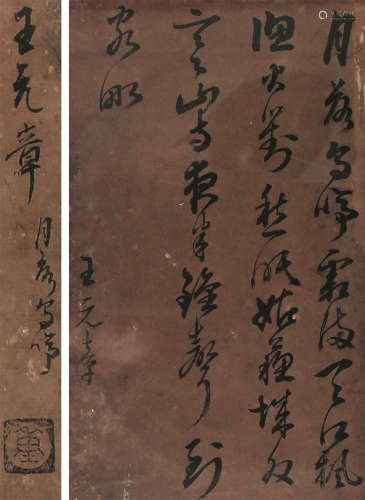 月落烏啼霜滿天江楓
漁火對愁眠姑蘇城外
寒山寺夜半鐘聲到
客船
王元章
王元章
月落烏啼